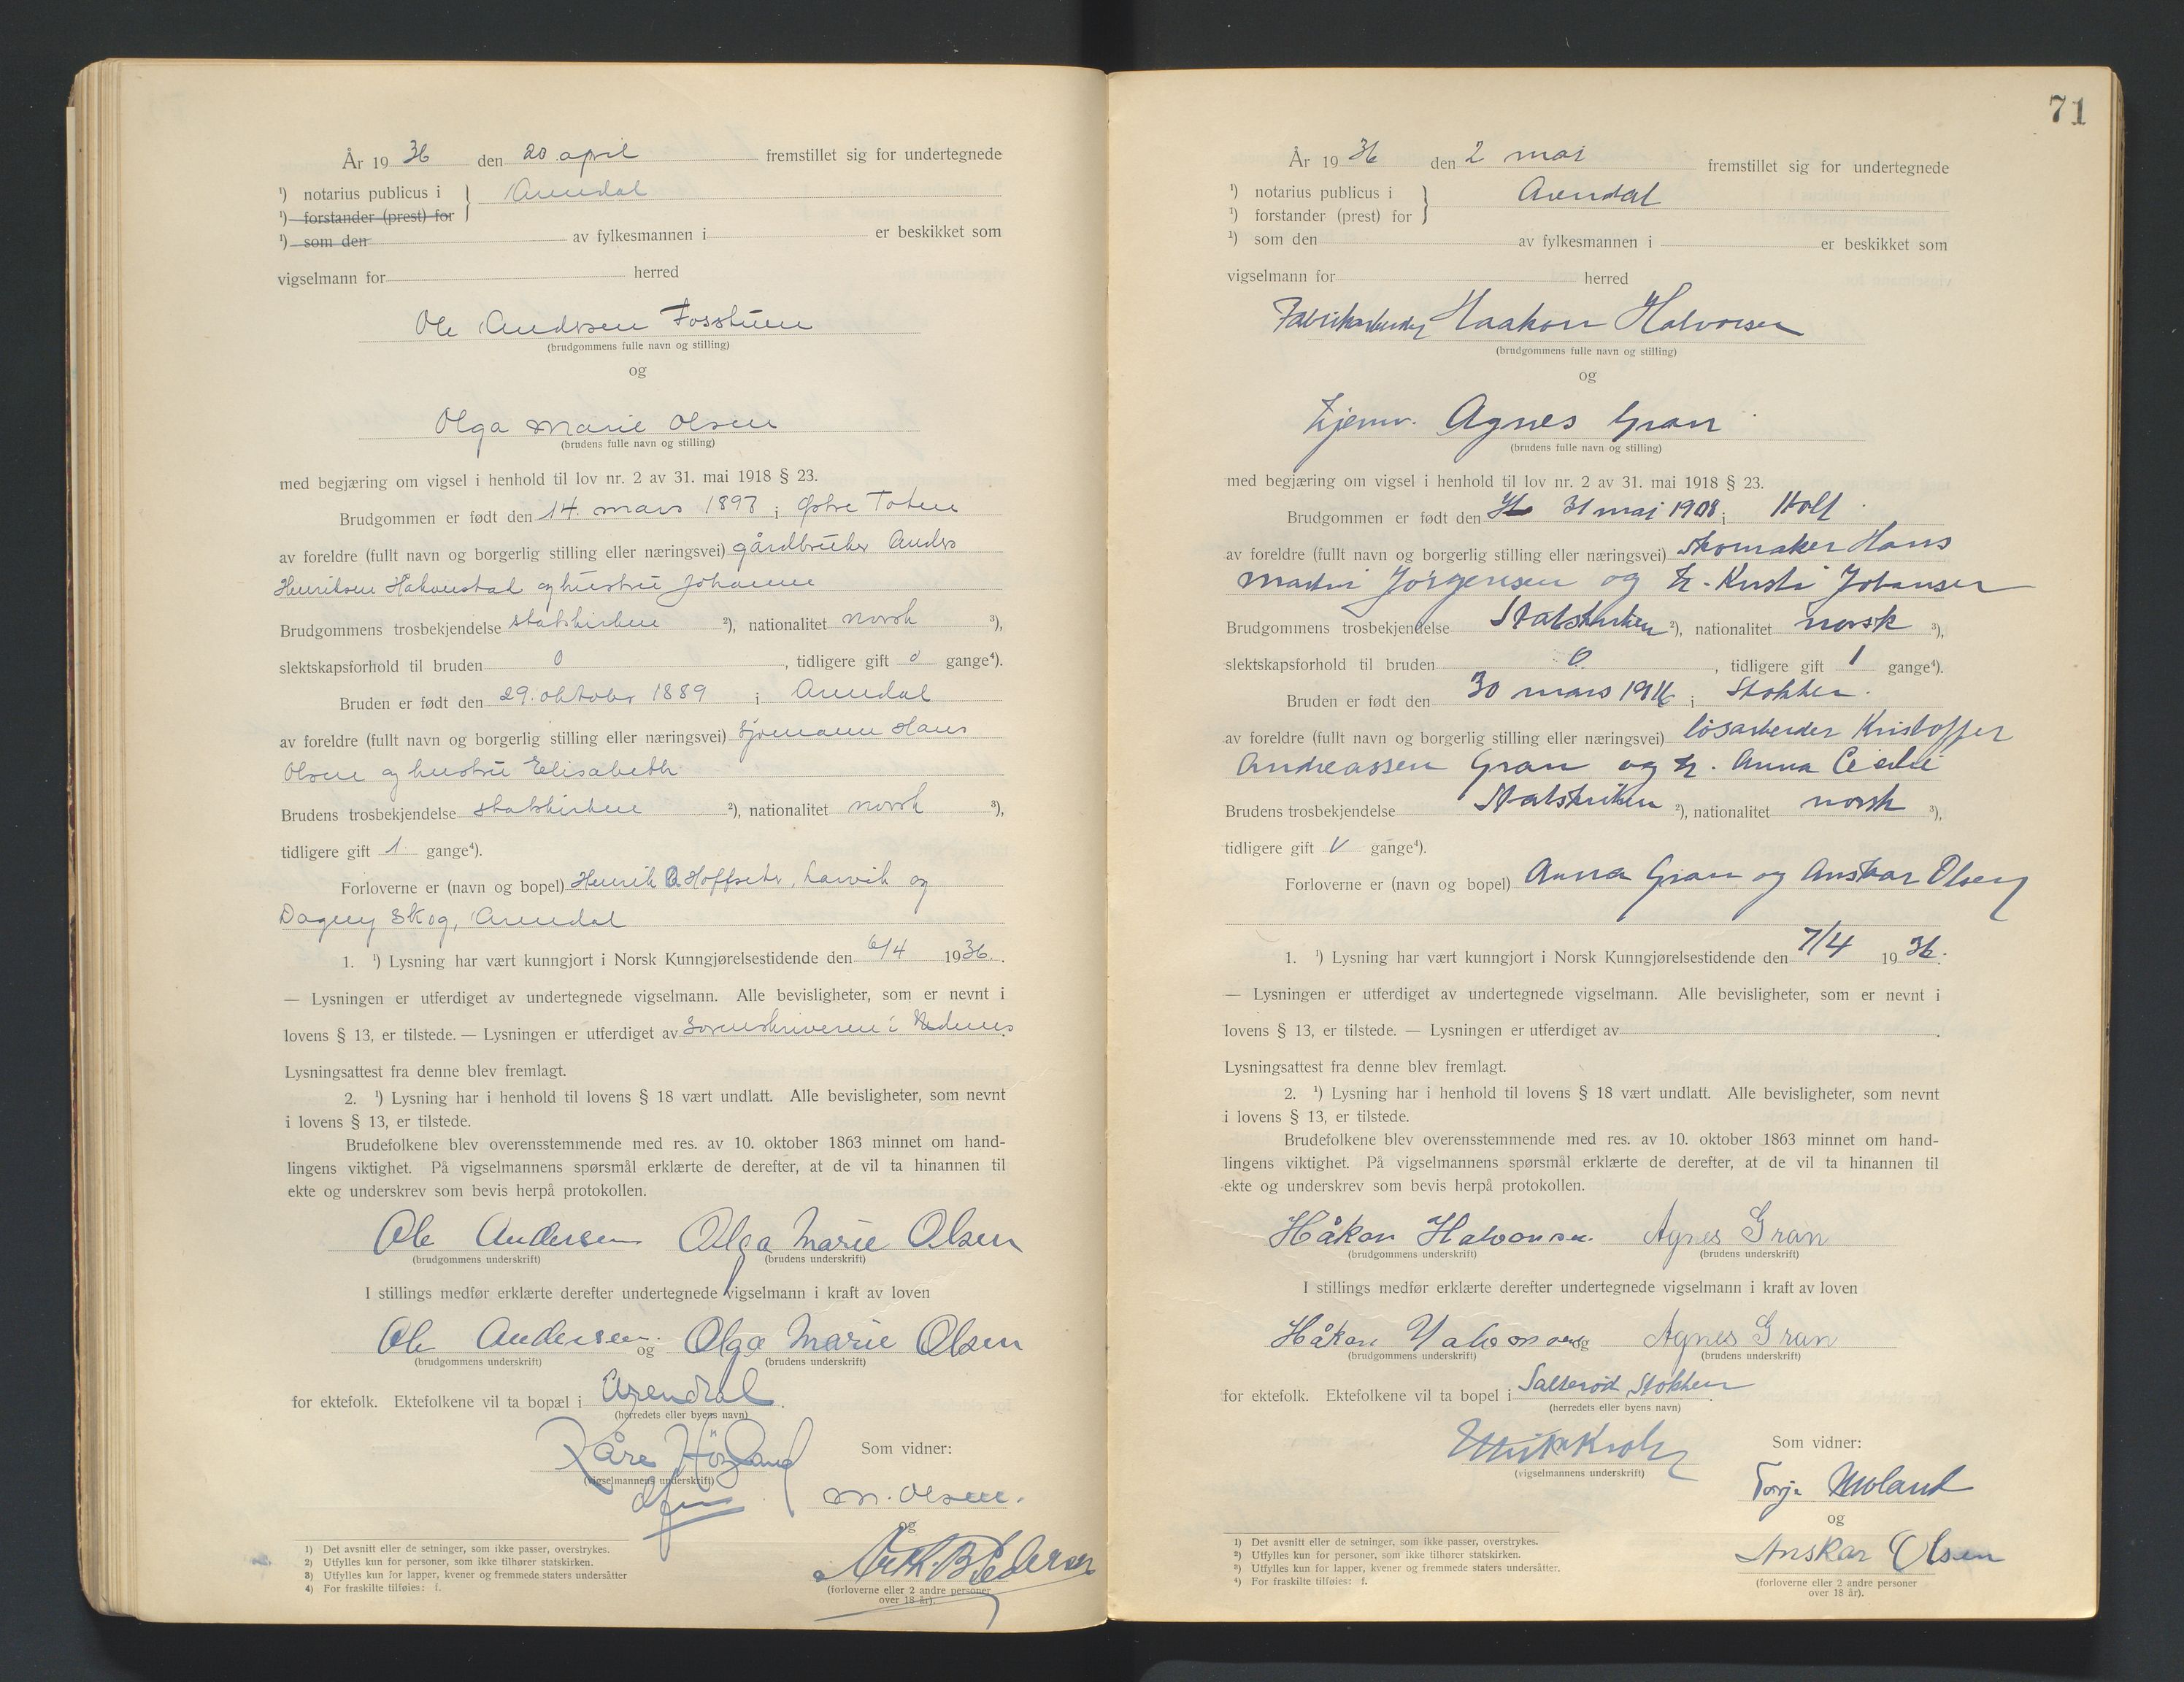 År 1936 den 20 april fremstillet sig for undertegnede
¹) notarius publicus i } Arendal
¹) forstander (prest) for
¹) som den av fylkesmannen i er beskikket som
vigselmann for herred
Ole Andersen Fosstuen
(brudgommens fulle navn og stilling)
og
Olga Marie Olsen
(brudens fulle navn og stilling)
med begjæring om vigsel i henhold til lov nr. 2 av 31. mai 1918 § 23.
Brudgommen er født den 14. mars 1893 i Østre Toten
av foreldre (fullt navn og borgerlig stilling eller næringsvei) gårdbruker Anders
Henriksen og hustru Johanne
Brudgommens trosbekjendelse statskirken ²), nationalitet norsk ³),
slektskapsforhold til bruden 0, tidligere gift 0 gange⁴).
Bruden er født den 29. oktober 1889 i Arendal
av foreldre (fullt navn og borgerlig stilling eller næringsvei) Sjømann Hans
Olsen og hustru Elisabeth
Brudens trosbekjendelse statskirken ²), nationalitet norsk ³),
tidligere gift 1 gange⁴).
Forloverne er (navn og bopel) Henrik Hoffseter, Larvik og
Dagny Skog, Arendal
1. ¹) Lysning har vært kunngjort i Norsk Kunngjørelsestidende den 6/4 1936.
— Lysningen er utferdiget av undertegnede vigselmann. Alle bevisligheter, som er nevnt i
lovens § 13, er tilstede. — Lysningen er utferdiget av Sorenskriveren i Nedenes.
Lysningsattest fra denne blev fremlagt.
2. ¹) Lysning har i henhold til lovens § 18 vært undlatt. Alle bevisligheter, som nevnt
i lovens § 13, er tilstede.
Brudefolkene blev overensstemmende med res. av 10. oktober 1863 minnet om hand-
lingens viktighet. På vigselmannens spørsmål erklærte de derefter, at de vil ta hinannen til
ekte og underskrev som bevis herpå protokollen.
Ole Andersen Olga Marie Olsen
(brudgommens underskrift) (brudens underskrift)
I stillings medfør erklærte derefter undertegnede vigselmann i kraft av loven
Ole Andersen og Olga Marie Olsen
(brudgommens underskrift) (brudens underskrift)
for ektefolk. Ektefolkene vil ta bopæl i Arendal.
(herredets eller byens navn)
Kåre
(vigselmannens underskrift)
Som vidner:
M. Olsen.
og
Pedersen
(forloverne eller 2 andre personer
over 18 år).
1) Det avsnitt eller de setninger, som ikke passer, overstrykes.
2) Utfylles kun for personer, som ikke tilhører statskirken.
3) Utfylles kun for lapper, kvener og fremmede staters undersåtter
4) For fraskilte tilføies: f.
71
År 1936 den 2 mai fremstillet sig for undertegnede
¹) notarius publicus i } Arendal
¹) forstander (prest) for
¹) som den av fylkesmannen i er beskikket som
vigselmann for herred
Fabrikarbeider Haakon Halvorsen
(brudgommens fulle navn og stilling)
og
Hjemv. Agnes Gran
(brudens fulle navn og stilling)
med begjæring om vigsel i henhold til lov nr. 2 av 31. mai 1918 § 23.
Brudgommen er født den 31 mai 1908 i Holt
av foreldre (fullt navn og borgerlig stilling eller næringsvei) skomaker Hans
Martin Jörgensen og h. Kirsti Johansen
Brudgommens trosbekjendelse Statskirken ²), nationalitet norsk ³),
slektskapsforhold til bruden 0, tidligere gift 1 gange⁴).
Bruden er født den 30 mars 1916 i Stokken
av foreldre (fullt navn og borgerlig stilling eller næringsvei) lösarbeider Kristoffer
Andreassen Gran og h. Anna Cecilie
Brudens trosbekjendelse Statskirken ²), nationalitet norsk ³),
tidligere gift gange⁴).
Forloverne er (navn og bopel) Anna Gran og Anskar Olsen
1. ¹) Lysning har vært kunngjort i Norsk Kunngjørelsestidende den 7/4 1936.
— Lysningen er utferdiget av undertegnede vigselmann. Alle bevisligheter, som er nevnt i
lovens § 13, er tilstede. — Lysningen er utferdiget av .
Lysningsattest fra denne blev fremlagt.
2. ¹) Lysning har i henhold til lovens § 18 vært undlatt. Alle bevisligheter, som nevnt
i lovens § 13, er tilstede.
Brudefolkene blev overensstemmende med res. av 10. oktober 1863 minnet om hand-
lingens viktighet. På vigselmannens spørsmål erklærte de derefter, at de vil ta hinannen til
ekte og underskrev som bevis herpå protokollen.
Håkon Halvorsen. Agnes Gran
(brudgommens underskrift) (brudens underskrift)
I stillings medfør erklærte derefter undertegnede vigselmann i kraft av loven
Håkon Halvorsen og Agnes Gran
(brudgommens underskrift) (brudens underskrift)
for ektefolk. Ektefolkene vil ta bopel i Salterød Stokken.
(herredets eller byens navn)
(vigselmannens underskrift)
Som vidner:
Moland
og
Anskar Olsen
(forloverne eller 2 andre personer
over 18 år).
1) Det avsnitt eller de setninger, som ikke passer, overstrykes.
²) Utfylles kun for personer, som ikke tilhører statskirken.
³) Utfylles kun for lapper, kvener og fremmede staters undersåtter.
⁴) For fraskilte tilføies: f.